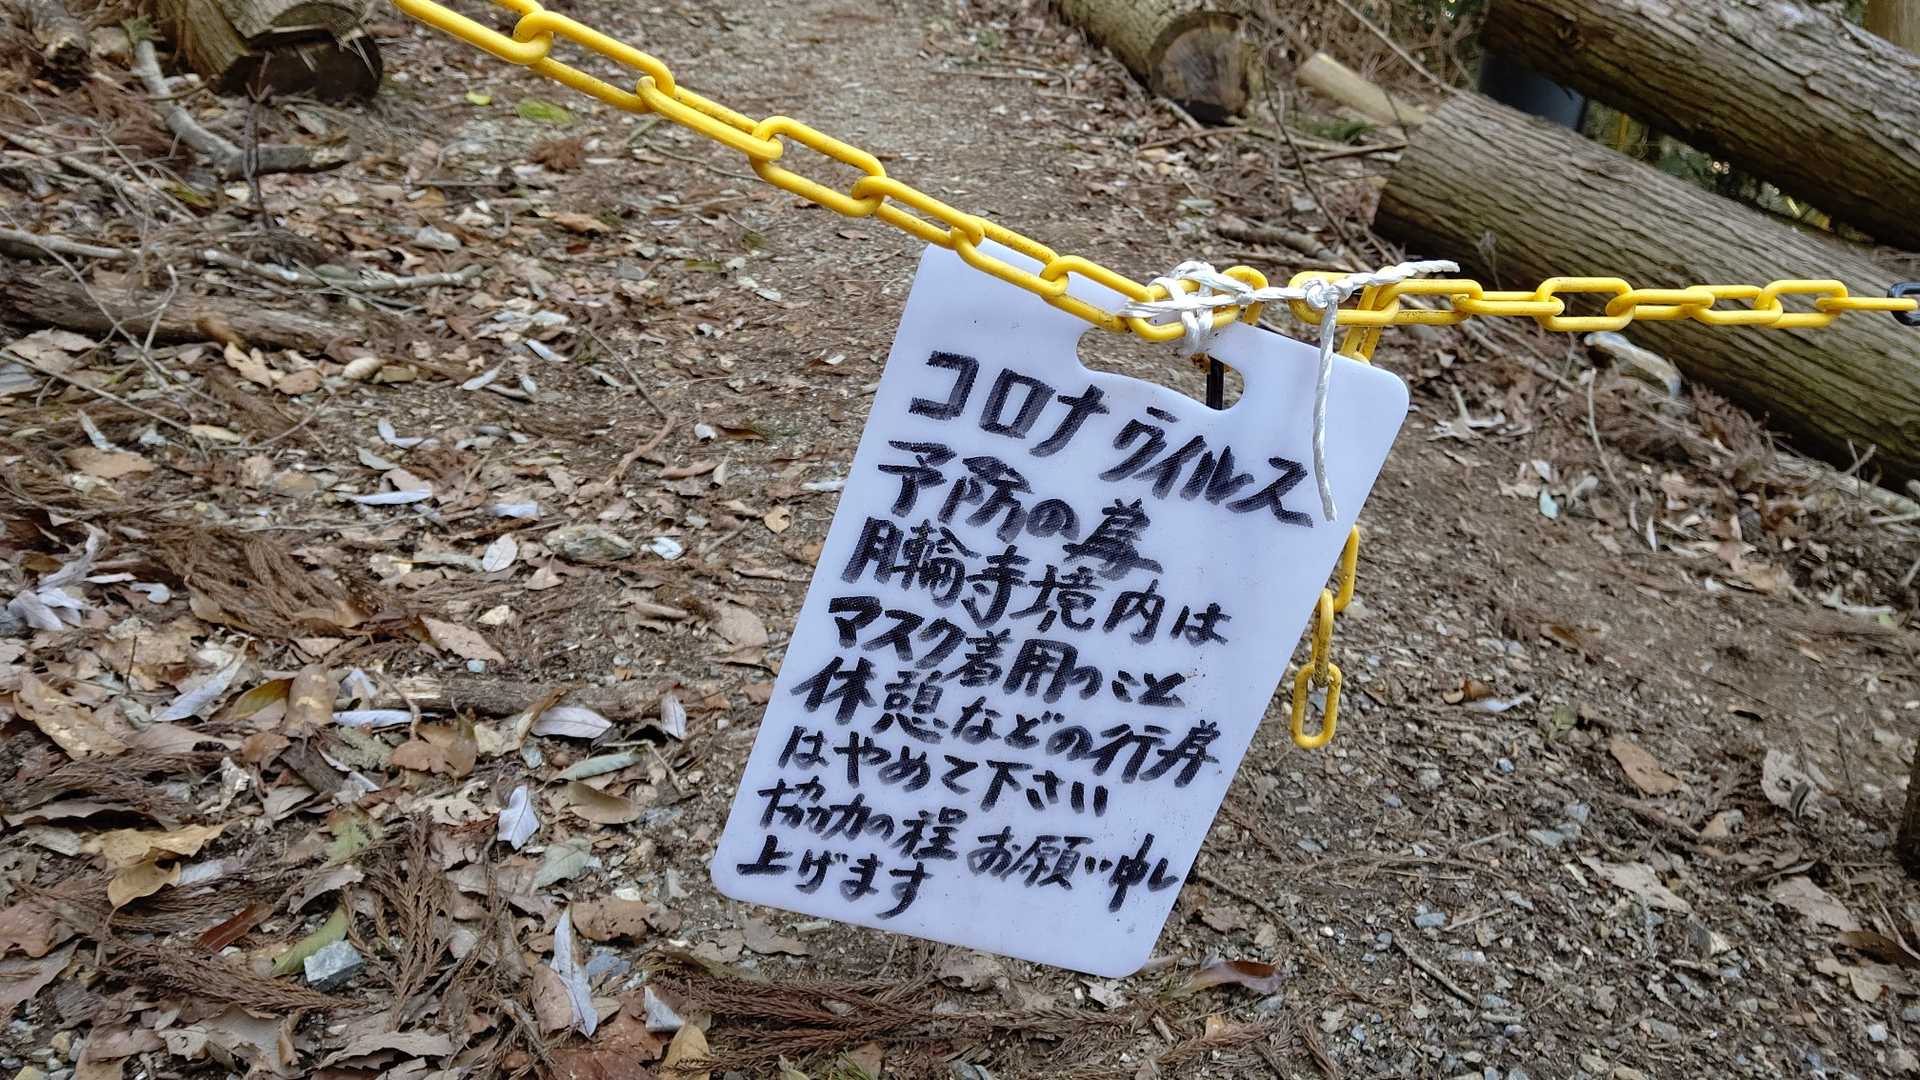 コロナウイルス
予防の為
月輪寺境内は
マスク着用のこと
休憩などの行為
はやめて下さい
協力の程お願い申し
上げます